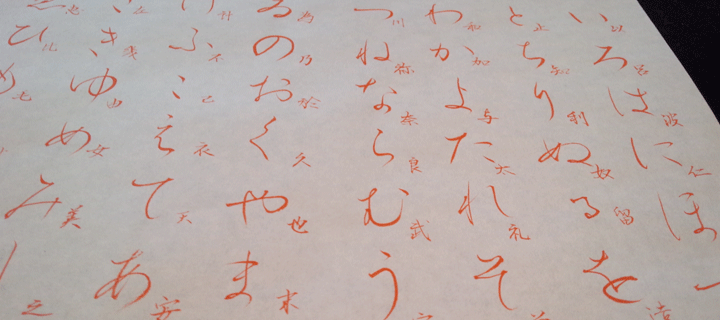 い以ろ呂は波に仁ほ
と止ち知り利ぬ奴る留を遠
わ和か加よ与た太れ礼そ
つ川ね祢な奈ら良む武う
ゐ為の乃お於く久や也ま末
ふ不こ己え衣て天あ安
き幾ゆ由め女み美し之
ひ比も毛